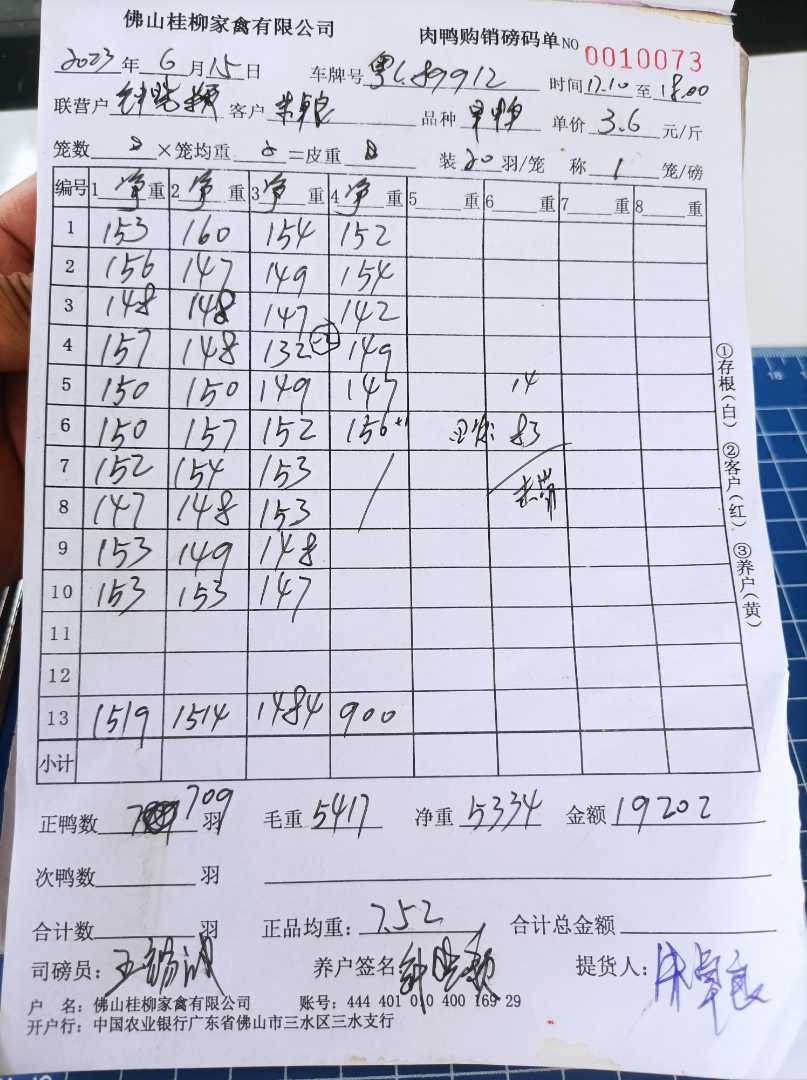 佛山桂柳家禽有限公司 肉鸭购销磅码单 NO 0010073
2023年 6月15日 车牌号 粤L89912 时间17.10至18.00
联营户 客户 品种 单价 3.6 元/斤
笼数 ×笼均重 =皮重 装20羽/笼 称 1 笼/磅
编号 1 净 重 2 净 重 3 净 重 4 净 重 5 重 6 重 7 重 8 重
1 153 160 154 152
2 156 147 149 154
3 148 148 147 142
4 157 148 132 -2 149
5 150 150 149 147 14
6 150 157 152 156 +1 83
7 152 154 153
8 147 148 153
9 153 149 148
10 153 153 147
11
12
13 1519 1514 1484 900
小计
①存根(白) ②客户(红) ③养户(黄)
正鸭数 709 羽 毛重 5417 净重 5334 金额 19202
次鸭数 羽
合计数 羽 正品均重: 7.52 合计总金额
司磅员: 养户签名 提货人:
户 名: 佛山桂柳家禽有限公司 账号: 444 401 010 400 169 29
开户行: 中国农业银行广东省佛山市三水区三水支行